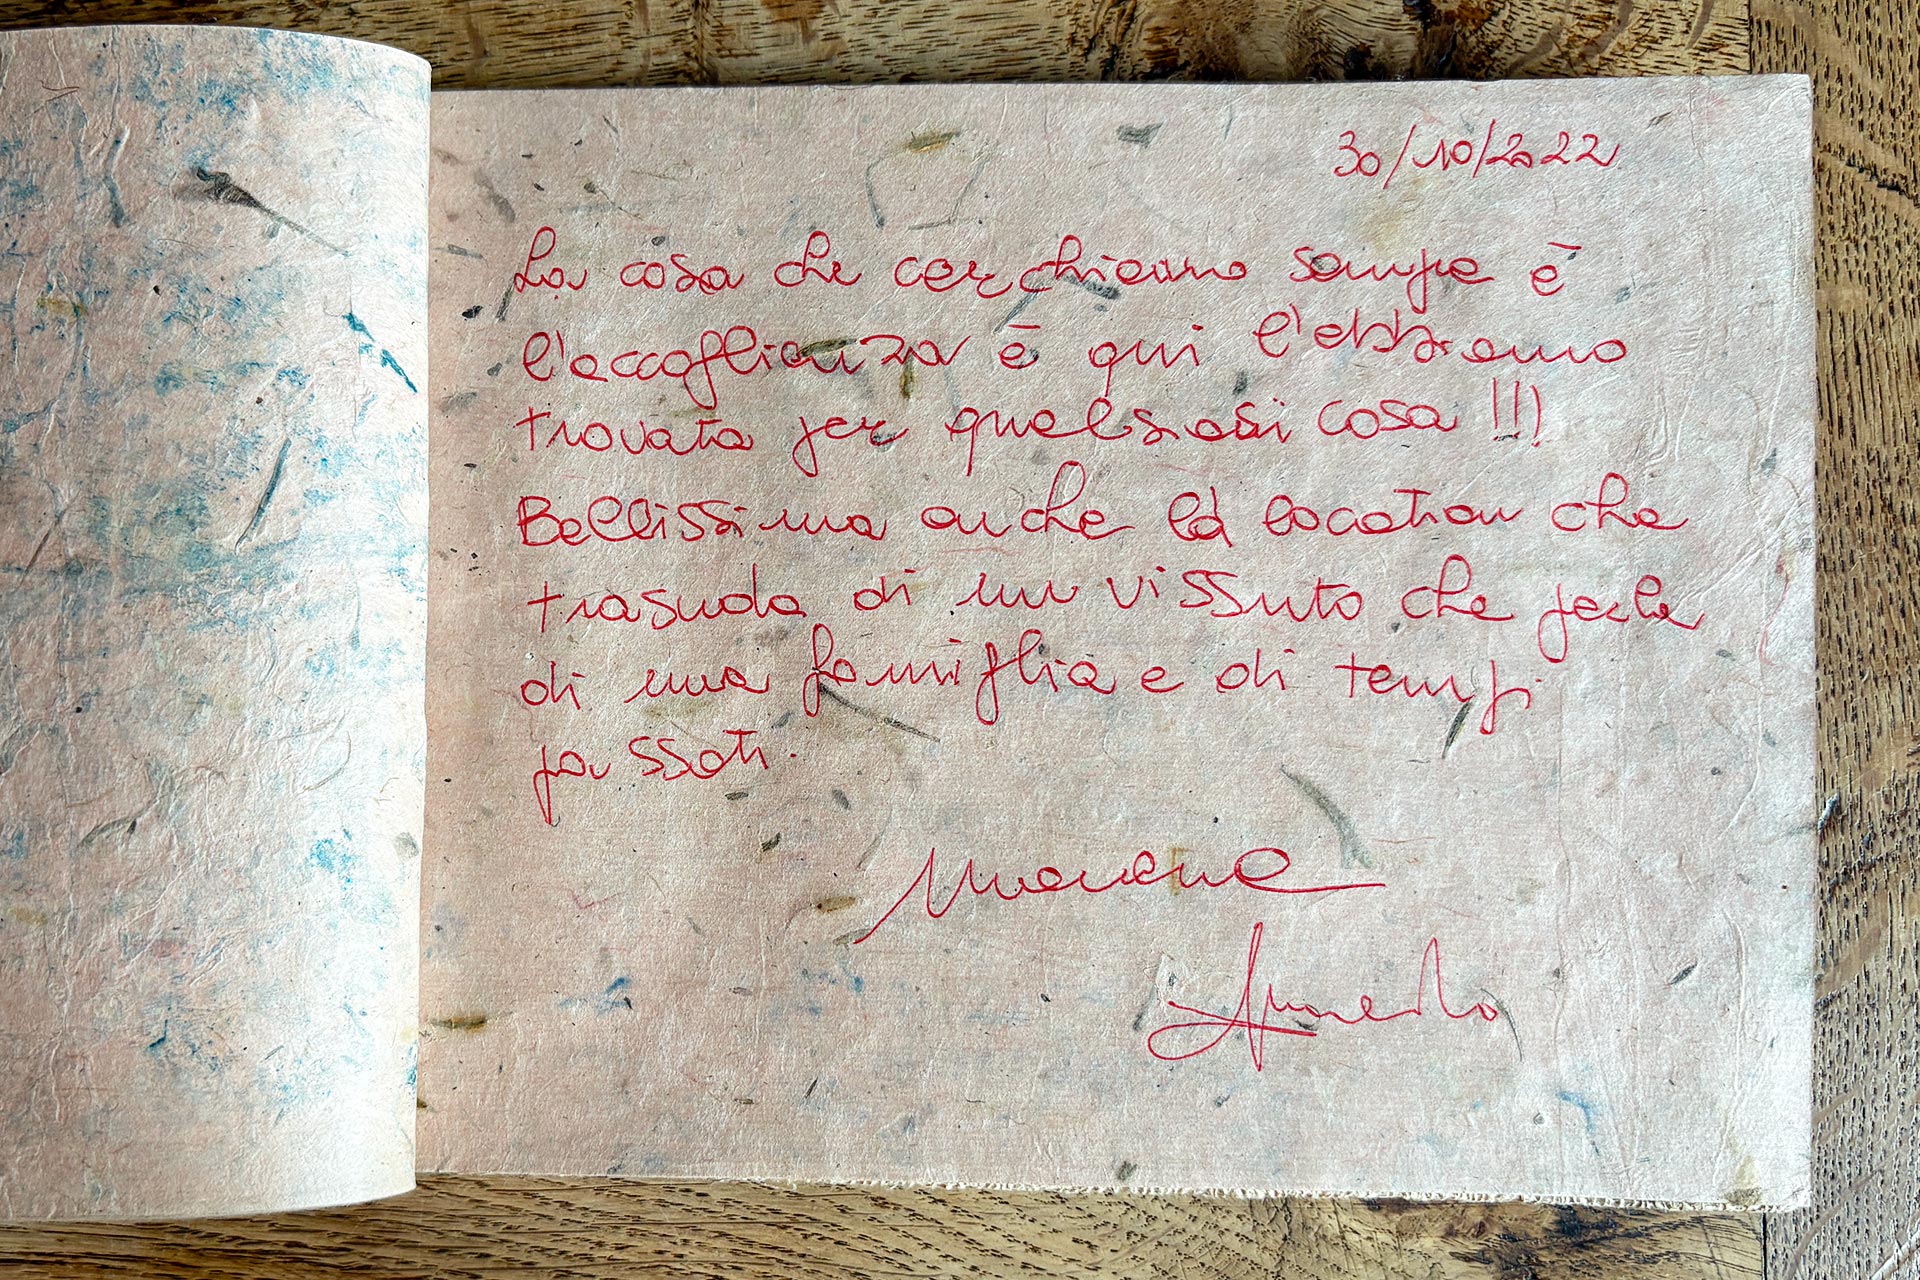 30/10/2022
La cosa che cerchiamo sempre è
l'accoglienza è qui l'abbiamo
trovata per qualsiasi cosa !!!
Bellissima anche la location che
trasuda di un vissuto che parla
di una famiglia e di tempi
passati.
Morena